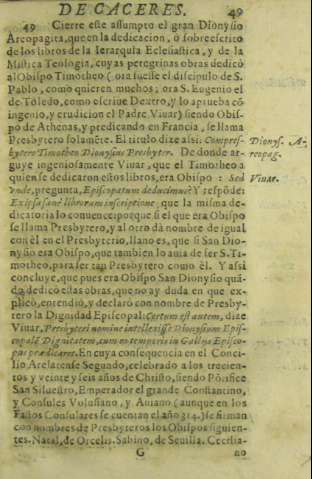 DE CACERES. 49
49 Cierre este assumpto el gran Dionysio
Areopagita, que en la dedicacion, ò sobreescrito
de los libros de la Ierarquia Eclesiastica, y de la
Mistica Teologia, cuyas peregrinas obras dedicò
al Obispo Timotheo (ora fuesse el discipulo de S.
Pablo, como quieren muchos; ora S. Eugenio el
de Toledo, como escriue Dextro, y lo aprueba cõ
ingenio, y erudicion el Padre Viuar) siendo Obis-
po de Athenas, y predicando en Francia, se llama
Presbytero solamẽte. El titulo dize assi: Compres-
bytero Timotheo Dionysius Presbyter. De donde ar-
guye ingeniosamente Viuar, que el Timotheo à
quien se dedicaron estos libros, era Obispo: Sed
vnde, pregunta, Episcopatum deducimus? Y respõde:
Ex ipsa sanè librorum inscriptione, que la misma de-
dicatoria lo conuence: porque si el que era Obispo
se llama Presbytero, y al otro dà nombre de igual
con èl en el Presbyterio, llano es, que si San Dio-
nysio era Obispo, que tambien lo auia de ser S. Ti-
motheo, para ser tan Presbytero como èl. Y assi
concluye, que pues era Obispo San Dionysio quã-
do dedicò estas obras, que no ay duda en que ex-
plicò, entendiò, y declarò con nombre de Presby-
tero la Dignidad Episcopal: Certum est autem, dize
Viuar, Presbyteri nomine intellexisse Dionysium Epis-
copalẽ Dignitatem, cum eo temporis in Gallijs Episco-
pus prædicaret. En cuya consequencia en el Conci-
lio Arelatense Segundo, celebrado a los trecien-
tos y veinte y seis años de Christo, siendo Põtifice
San Siluestro, Emperador el grande Constantino,
y Consules Volusiano, y Aniano (aunque en los
Fastos Consulares se cuentan el año 314.) se firman
con nombres de Presbyteros los Obispos siguien-
tes. Natal, de Orcelis. Sabino, de Seuilla. Cecilia-
G no
Dionys. A-
reopag.
Viuar.